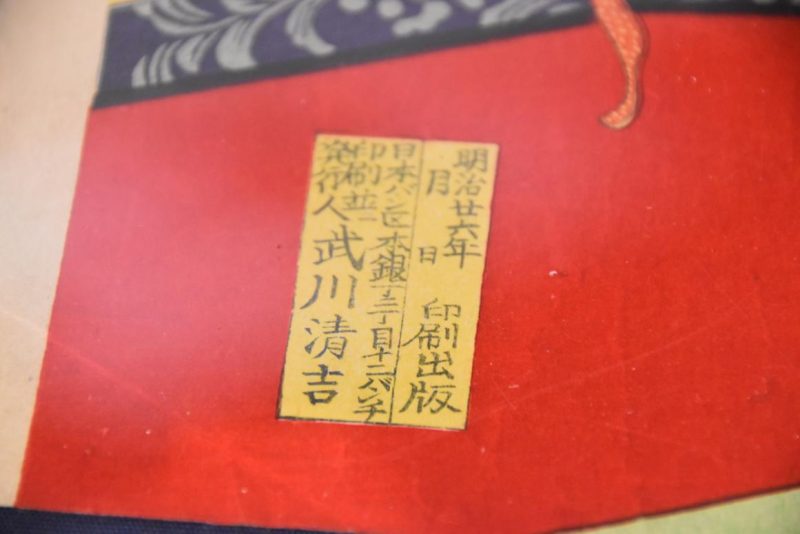 明治廿六年
月 日 印刷出版
日本バシ区本銀丁二丁目十二バンチ
印刷並
発行人 武川清吉